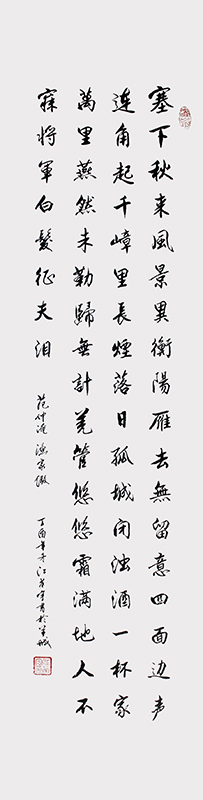 塞下秋来風景異衡陽雁去無留意四面边声
连角起千嶂里長煙落日孤城闭浊酒一杯家
萬里燕然未勒歸無計羌管悠悠霜满地人不
寐将軍白髮征夫泪
范仲淹 渔家傲
丁酉年